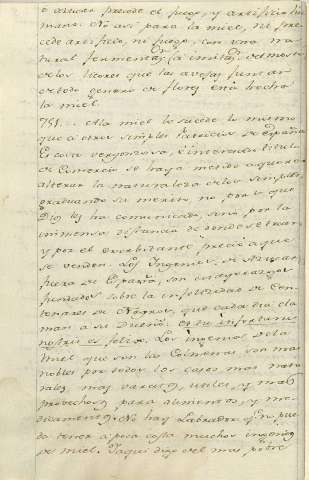 o azucar precede el fuego, y artificio hu
mano. No asi para la miel, ni pre
cede artificio, ni fuego, con una na
tural fermentaz.n (a imitaz.n del mosto
de los licores que las avejas juntan
de todo genero de flores esta hecha
la miel.
751... Ala miel le sucede lo mismo
que à otros simples preciosos de España
Es cosa vergonzosa, è interesa titulo
de Comercio se haya metido a querer
alterar la naturaleza de los simples,
graduando su merito, no por lo que
Dios les ha comunicado, sino por la
inmensa distancia de donde se traen
y por el exorbitante precio a que
se venden. Los Ingenios de Azucar,
fuera de España, son
fundados sobre la infelicidad de Cen
tenares de Negros, que cada dia cla
man a su Dueño:
nostris es felix. Los ingenios de la
Miel que son las Colmenas, son mas
nobles por todos los
rales, mas varatos, utiles, y mas
probechosos para alimentos, y me
dicamentos. No hay Labrador q.e no pue
da tener a poca costa muchos ingenios
de miel. Y aqui digo del mas pobre